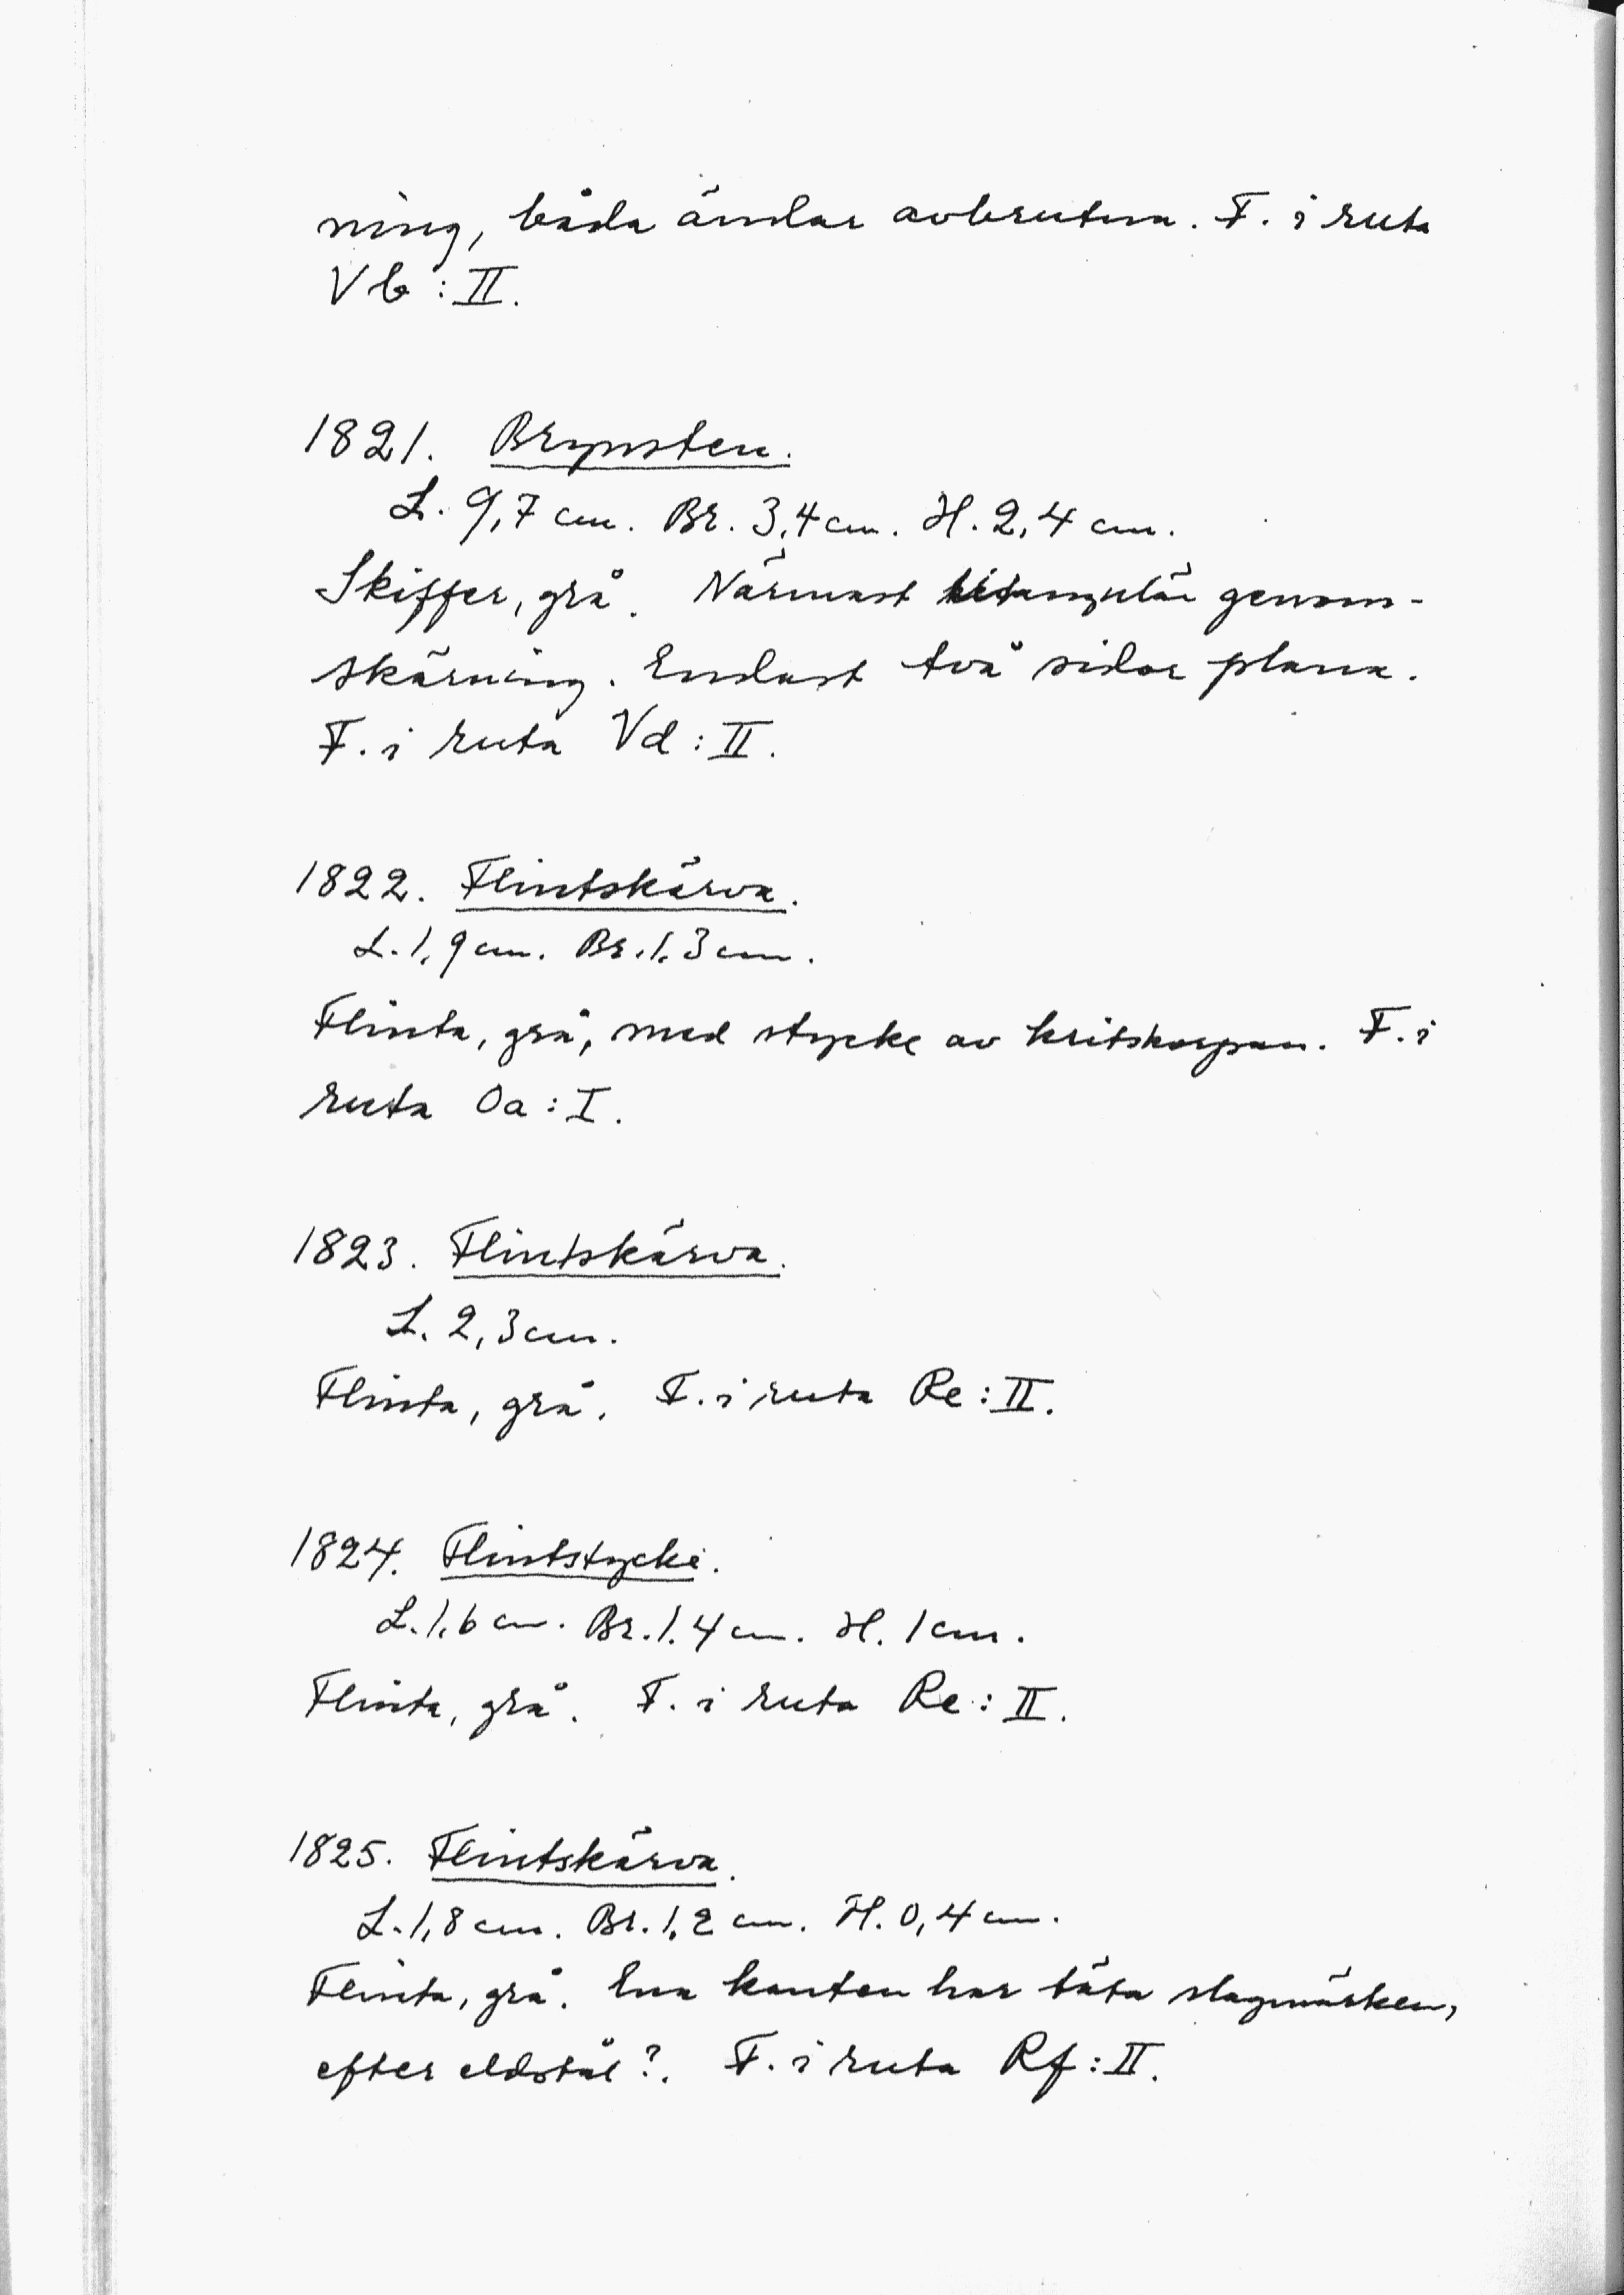 ning, båda ändar avbrutna. F. i ruta
Vb : II.
1821. Brynsten.
L. 9,7 cm. Br. 3,4 cm. H. 2,4 cm.
Skiffer, grå. Närmast rektangulär genom-
skärning. Endast två sidor plana.
F. i ruta Vd : II.
1822. Flintskärva.
L. 1,9 cm. Br. 1,3 cm.
Flinta, grå, med stycke av kritskorpan. F. i
ruta Oa : I.
1823. Flintskärva.
L. 2,3 cm.
Flinta, grå. F. i ruta Re : II.
1824. Flintstycke.
L. 1,6 cm. Br. 1,4 cm. H. 1 cm.
Flinta, grå. F. i ruta Re : II.
1825. Flintskärva.
L. 1,8 cm. Br. 1,2 cm. H. 0,4 cm.
Flinta, grå. Ena kanten har täta slagmärken,
efter eldstål?. F. i ruta Rf : II.